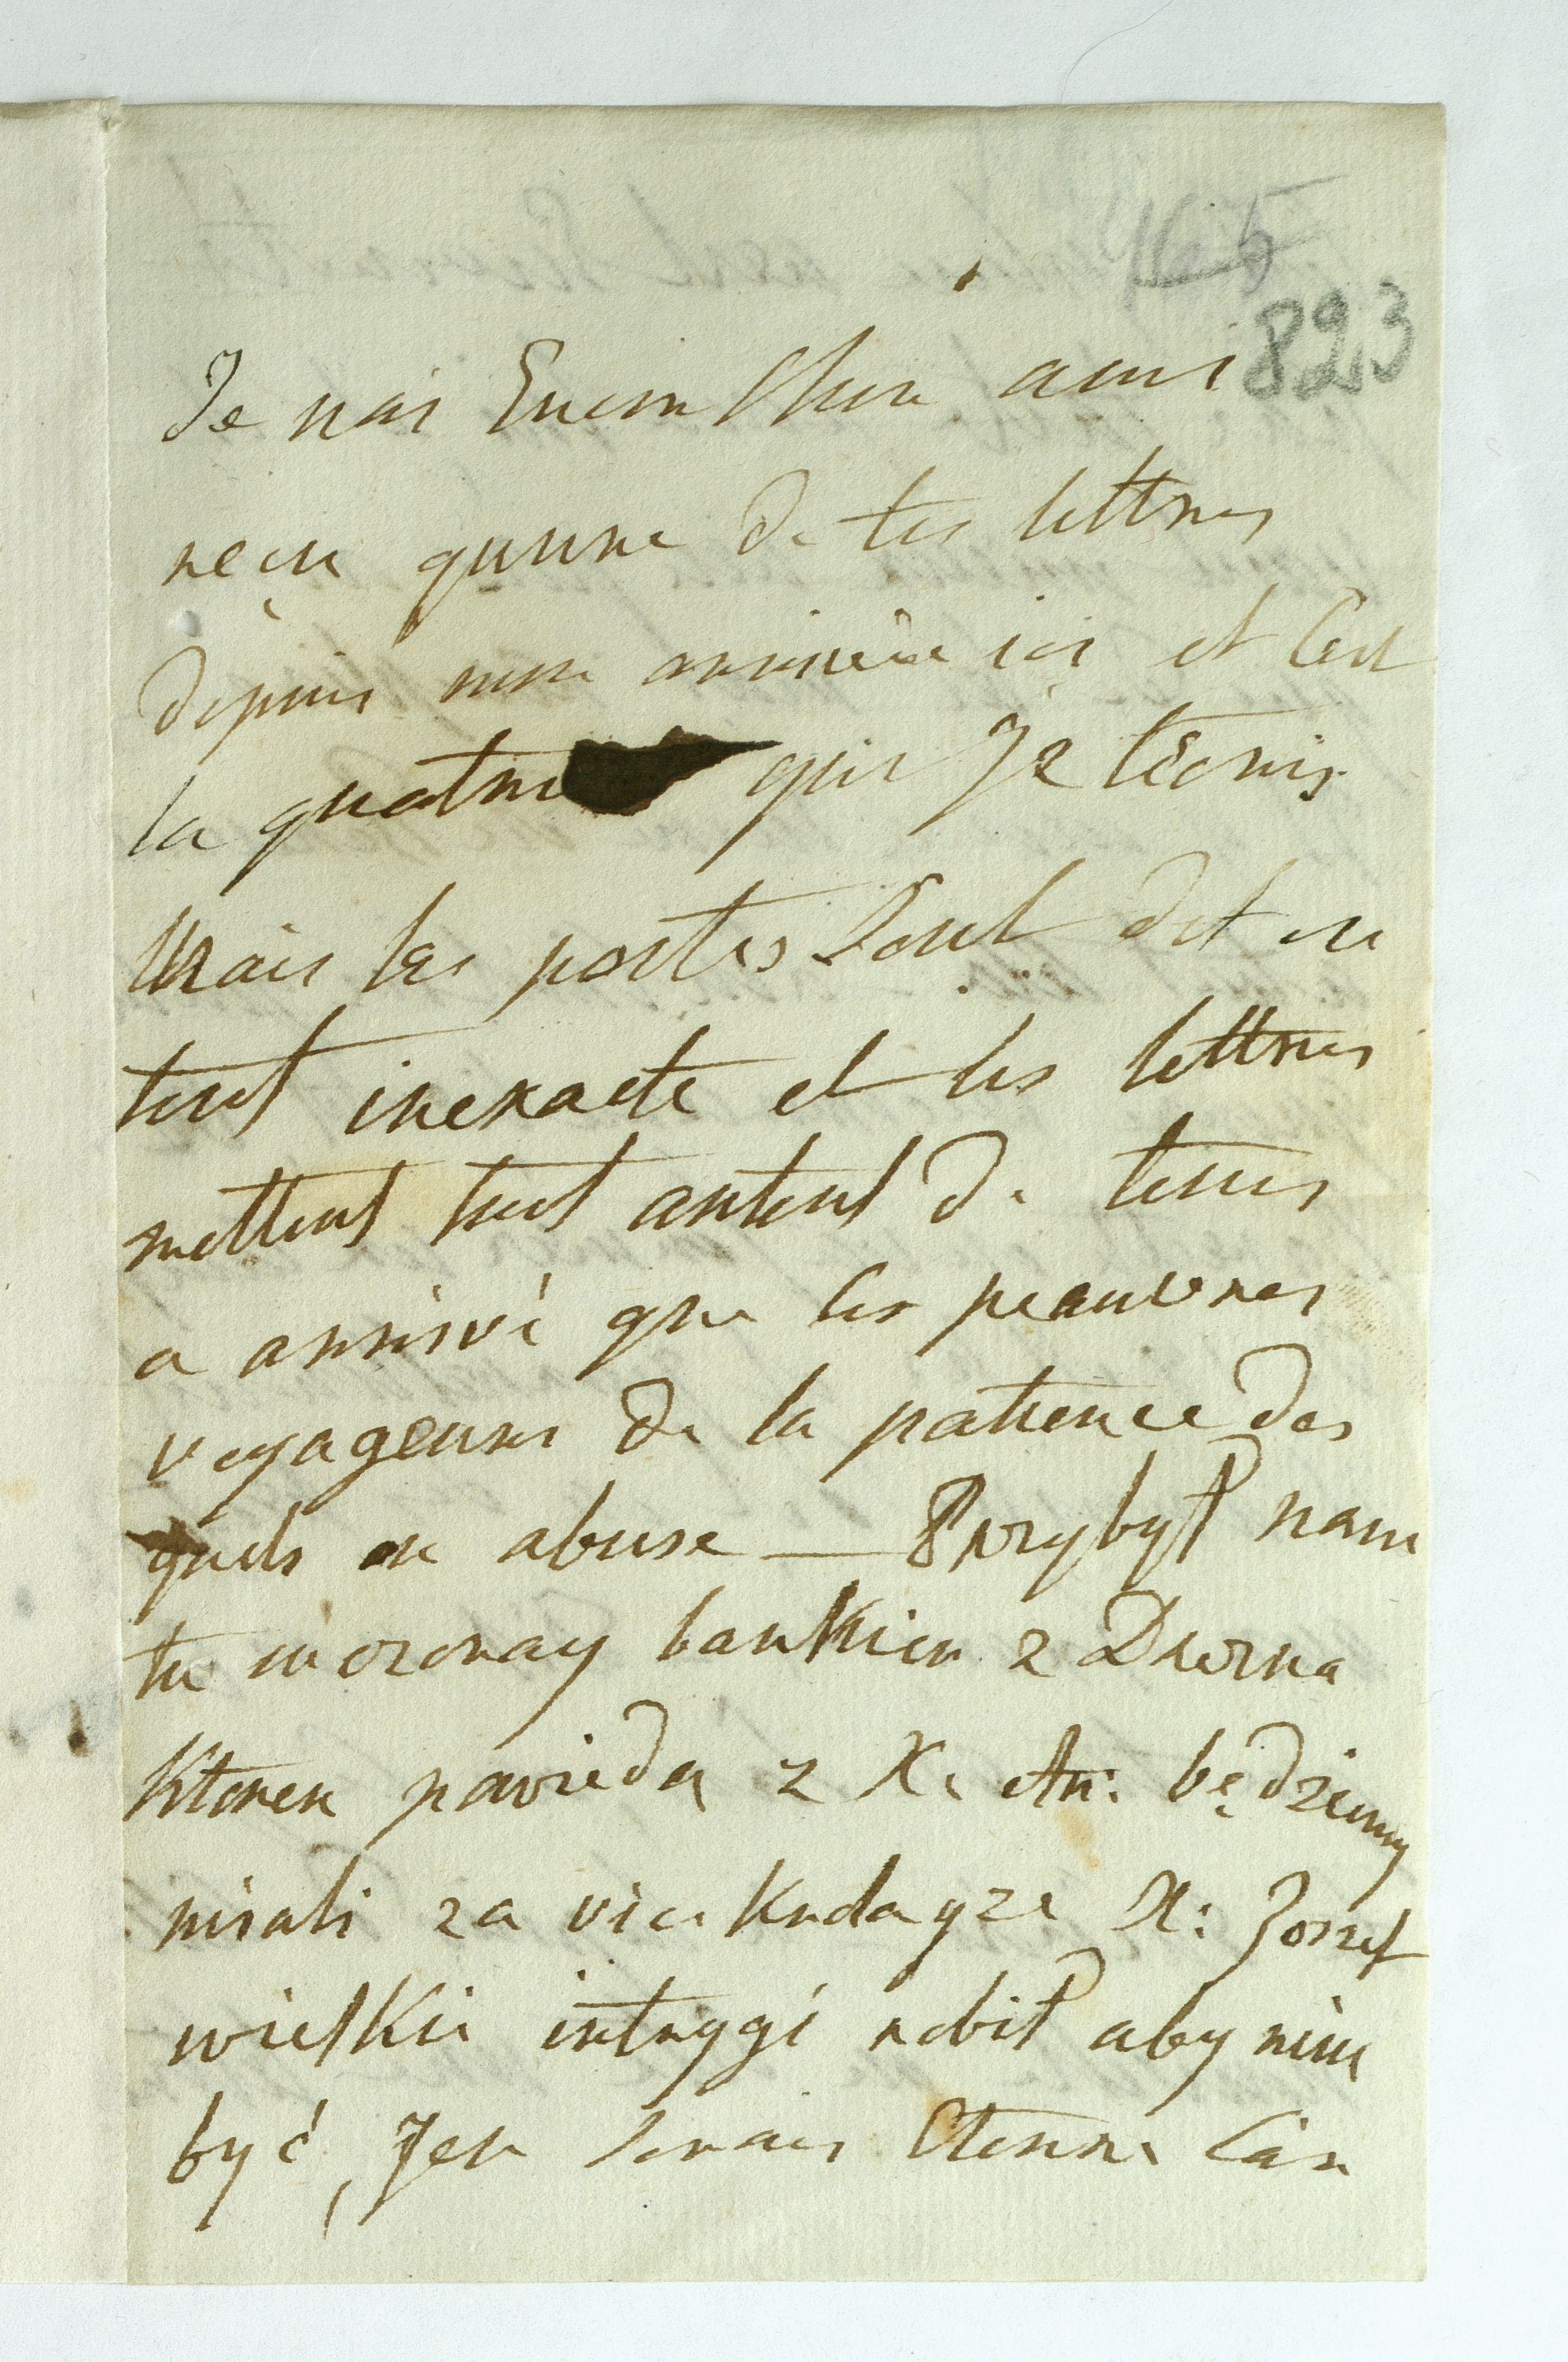 465
823
Je nai Encor Cher ami
reçu quune de tes lettres
depuis mon arrivèe ici et Cest
la quatri que Je técris
Mais les postes Sont dit on
tout inexacte et les lettres
mettent tout autent de tems
a arrivé que les peauvres
voyageurs de la patience des
quels on abuse — Przybył nam
tu wczoray bankier z Drezna
Ktoren powieda z X. An: będziemy
mieli za vice Krola yze X: Jozef
wielkie intrygi robił aby nim
być, Jen serais Etonné Car